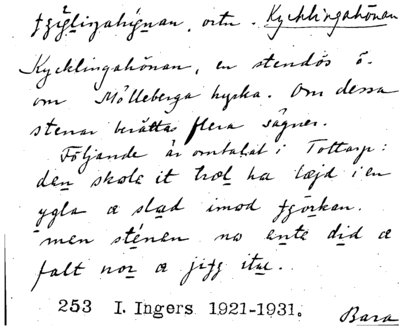 ʄȝiglingahignan, ortn. Kycklingahönan
Kycklingahönan, en stendös ö.
om Mölleberga kyrka. Om dessa
stenar berättas flera sägner.
Följande är omtalat i Tottarp:
den skole it trol ha lajd i en
ygla a slad imod
men sténen no ente did a
falt nor a itu.
253 I. Ingers 1921-1931.
Bara